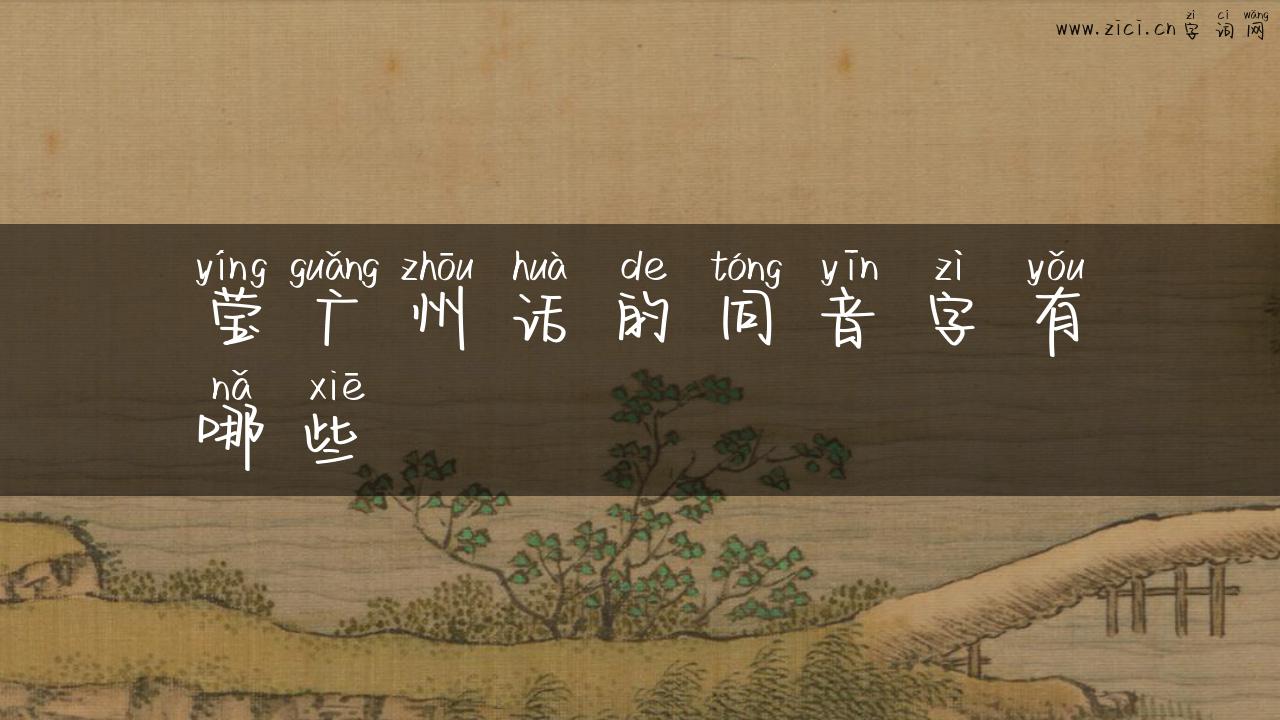 zì cí wǎng
www.zici.cn 字词网
yíng guǎng zhōu huà de tóng yīn zì yǒu
莹广州话的同音字有
nǎ xiē
哪些